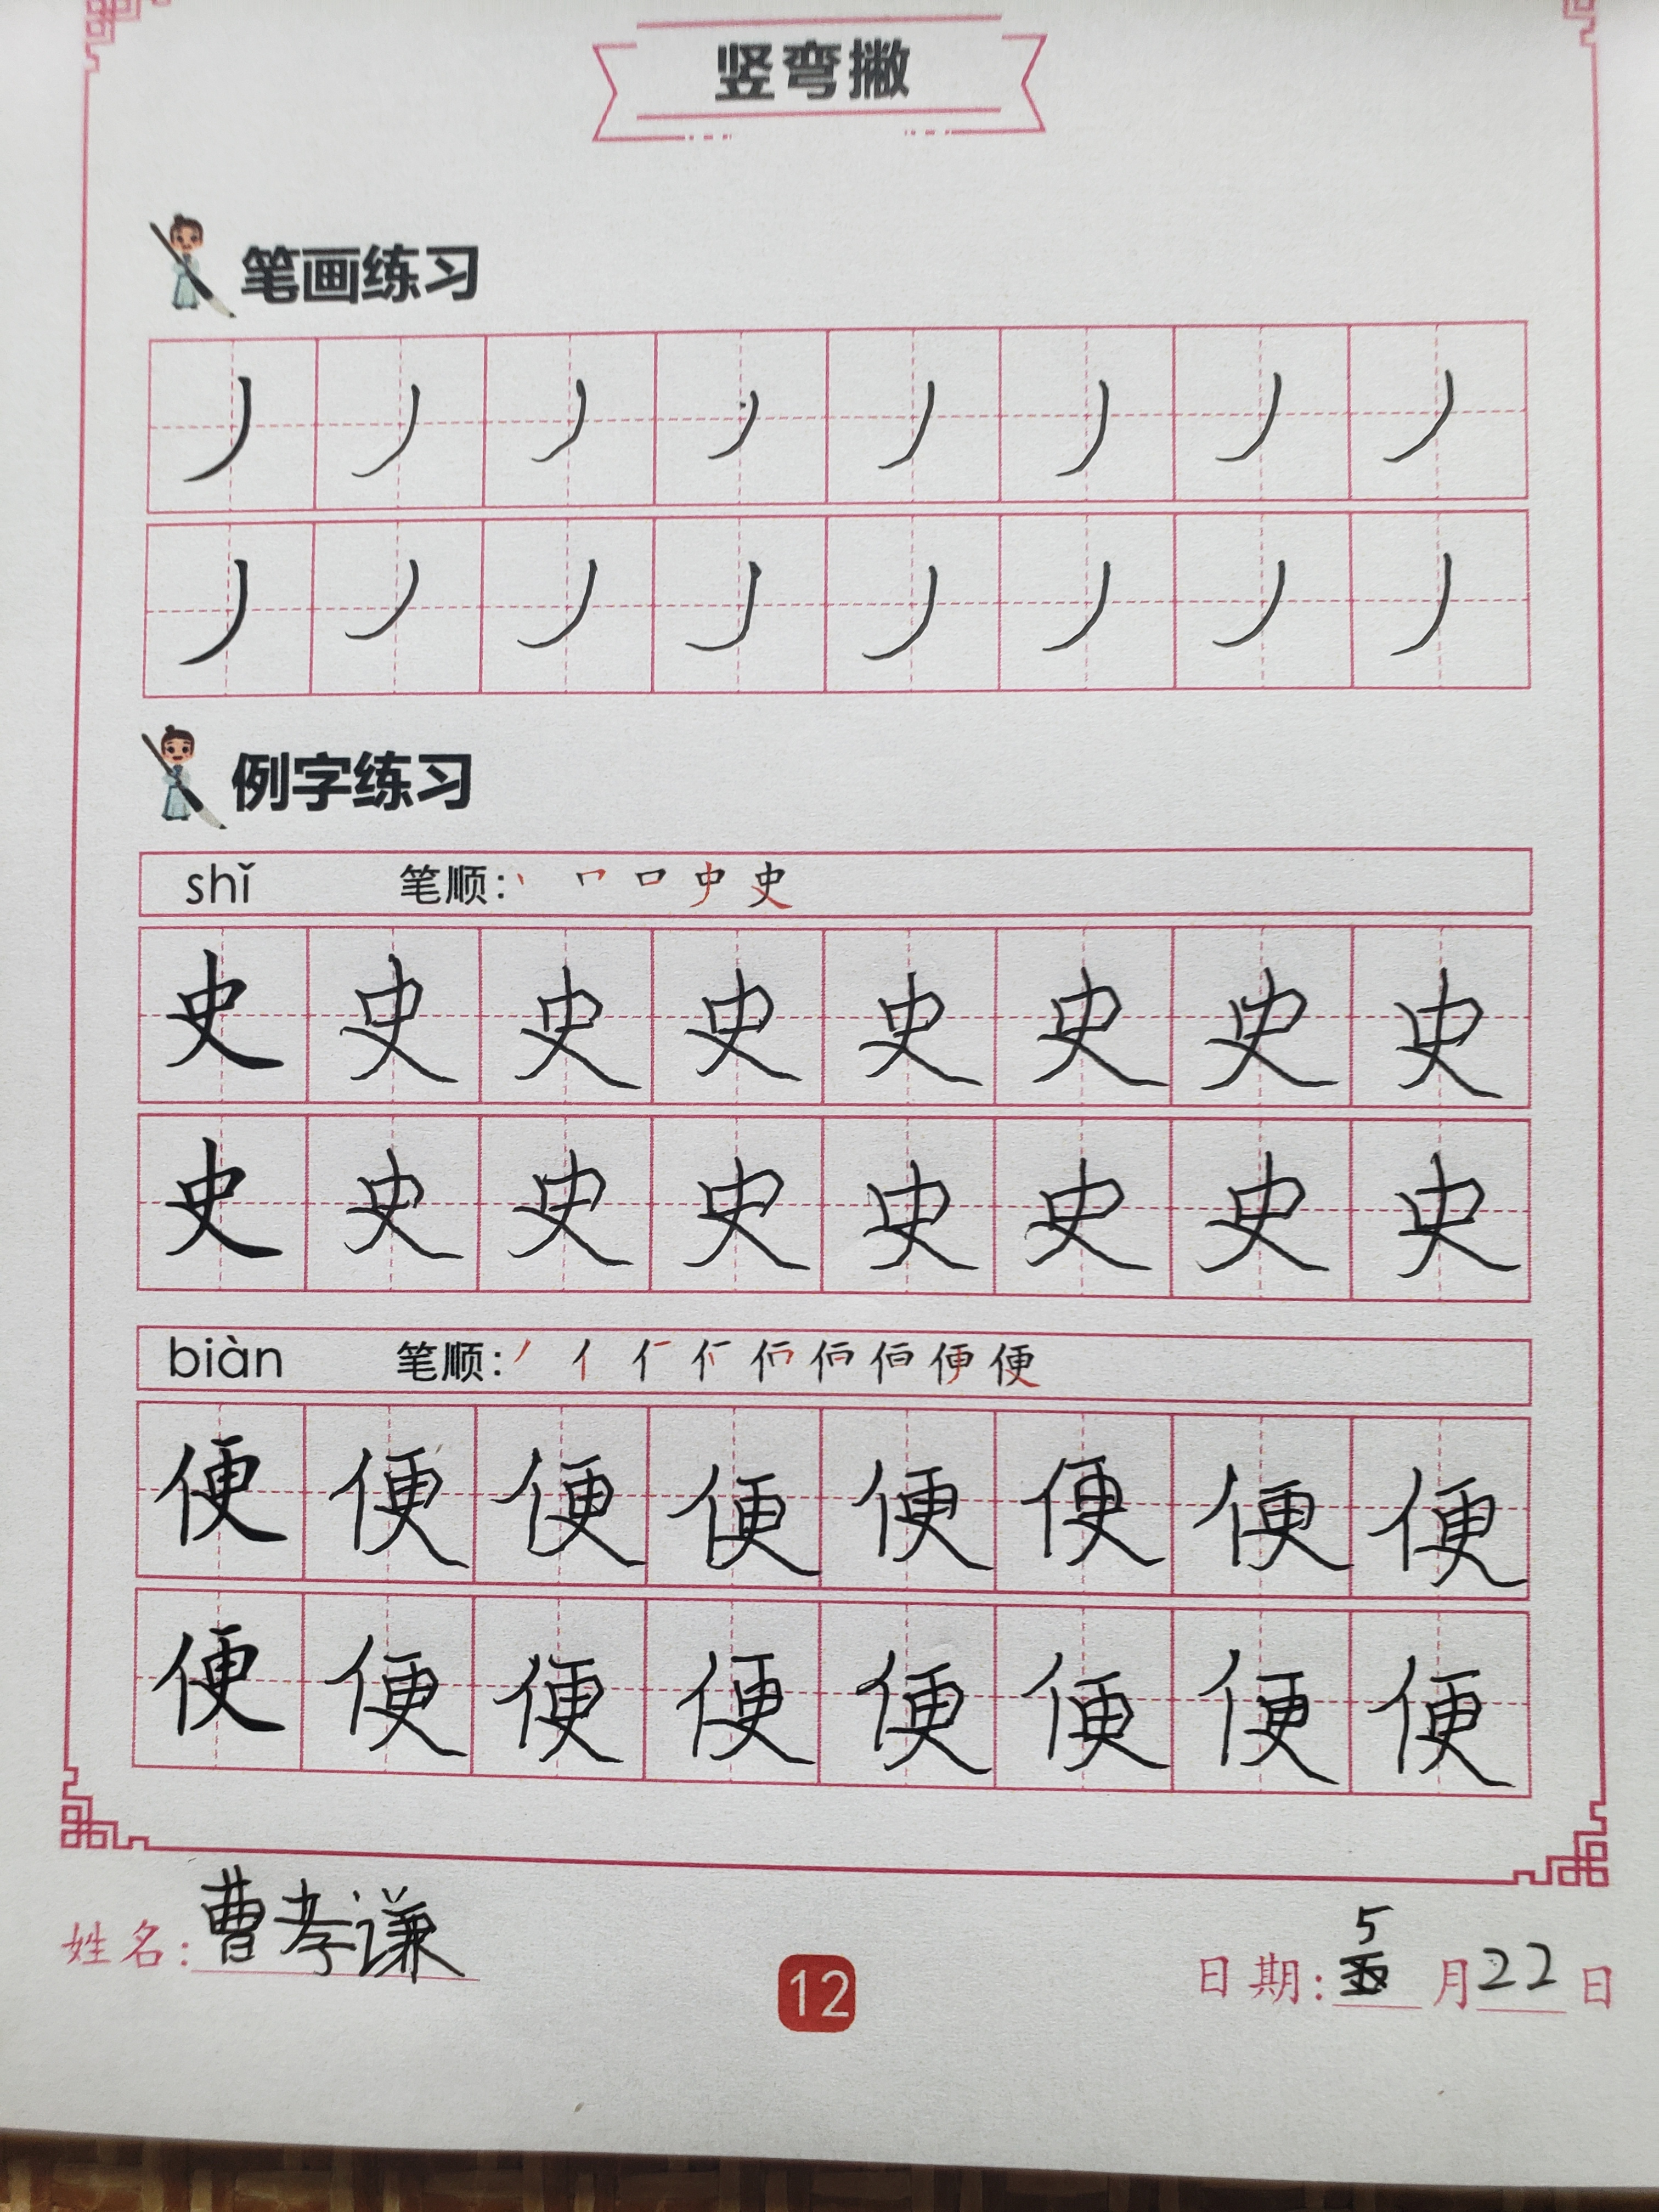 竖弯撇
笔画练习
丿 丿 丿 丿 丿 丿 丿 丿
丿 丿 丿 丿 丿 丿 丿 丿
例字练习
shǐ 笔顺: 丶 𠃍 口 史 史
史 史 史 史 史 史 史 史
史 史 史 史 史 史 史 史
biàn 笔顺: 丿 亻 便 便
便 便 便 便 便 便 便 便
便 便 便 便 便 便 便 便
姓名: 曹孝谦 12 日期: 5 月 22 日